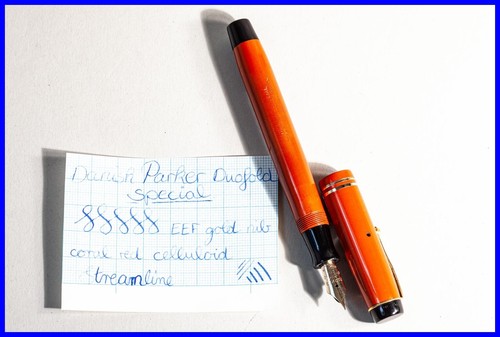 Danish Parker Duofold
Special
EEF gold nib
coral red celluloid
Streamline